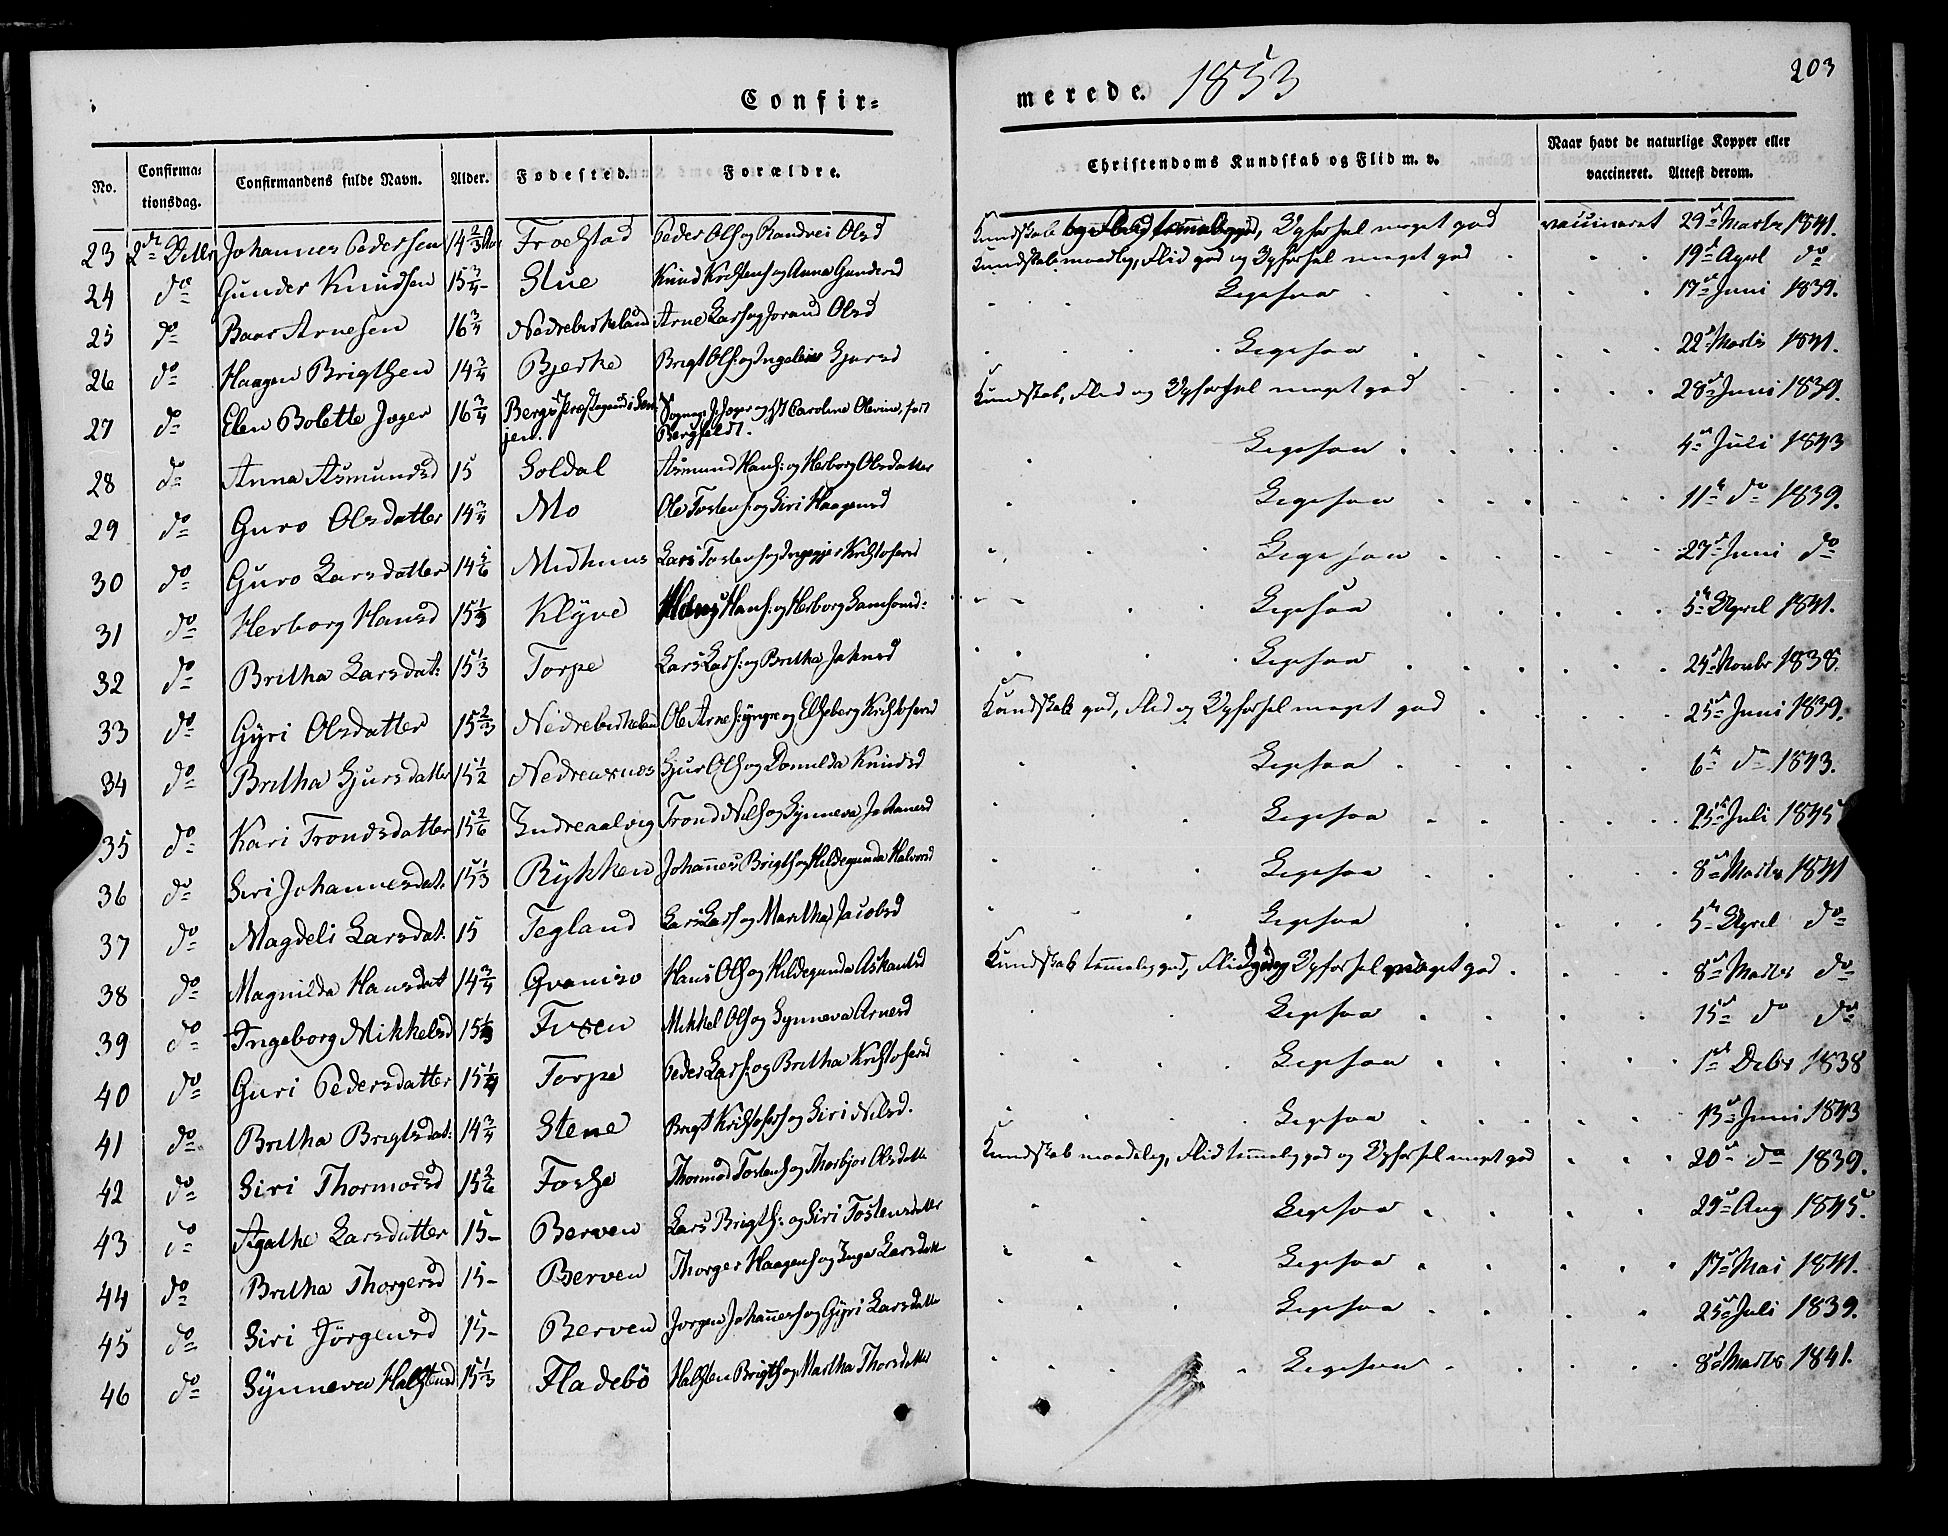 Confir=
merede. 1853
203
No. Confirma=tionsdag. Confirmandens fulde Navn. Alder. Fødested. Forældre. Christendoms Kundskab og Flid m. v. Naar havt de naturlige Kopper eller vaccineret. Attest derom.
23 Johannes Pedersen 14 2/3 Peder Ols og Randvei Olsd Kundskab Opførsel meget god vaccineret 29 Marts 1841.
24 do Gunder Knudsen 15 3/4 Stue Knud og Anna Gundersd Kundskab maadelig, Flid god og Opførsel meget god 19 April do
25 do Baar Arnesen 16 3/4 Nedrebirkeland Arne Lars og Joraud Olsd Ligesaa 17 Juni 1839.
26 do Haagen Brigthsen 14 3/4 Bjerke Brigt Ols: og Ingeleiv Gjursd Ligesaa 22 Marts 1841.
27 do Elen Bolette Jæger 16 3/4 Kundskab, Flid og Opførsel meget god 28 Juni 1839.
jen. Bergfeldt.
28 do Anna Asmundsd 15 Soldal Asmund Hans: og Herborg Olsdatter Ligesaa 4 Juli 1843
29 do Guro Olsdatter 14 3/4 Mo Ole Tostens: og Siri Haagensd Ligesaa 11 do 1839.
30 do Guro Larsdatter 14 5/6 Midtnus Lars Tostens og Kristofersd Ligesaa 27 Juni do
31 do Herborg Hansd 15 1/3 Klÿve Hans: og Herborg Samsonsd: Ligesaa 5 April 1841.
32 do Britha Larsdat: 15 1/3 Torpe Lars Lars: og Britha Johnsd Ligesaa 24 Novbr 1838.
33 do Gÿri Olsdatter 15 2/3 Nedrebirkeland Ole Arnes: yngre og Elsebery Kristofersd Kundskab god, Flid og Opførsel meget god 25 Juni 1839.
34 do Britha Gjursdatter 15 1/2 Nedreaxnes Gjur Ols og Domilda Knudsd Ligesaa 6 do 1843.
35 do Kari Trondsdatter 15 2/6 Indreaalvig Trond Nils og Synneva Johannesd Ligesaa 25 Juli 1845
36 do Siri Johannesdat: 15 1/3 Rÿkken Johannes Brigths og Hildegunda Halvorsd Ligesaa 8 Marts 1841
37 do Magdeli Larsdat: 15 Tegland Lars Lars og Maritha Jacobsd Ligesaa 5 April do
38 do Magnilda Hansdat 14 3/4 Qvamsø Hans Ols og Hildegunda Askautsd Kundskab temmelig god, Flid Opførsel meget god 8 Marts do
39 do Ingeborg Mikkelsd Mikkel Ols og Synneva Arnesd Ligesaa 15 do do
40 do Guri Pedersdatter 15 1/4 Torpe Peder Lars: og Britha Kristofersd Ligesaa 1 Debr 1838
41 do Britha Brigtsdat: 14 3/4 Stene Brigt Kristofers og Siri Nilsd. Ligesaa 13 Juni 1843
42 do Siri Thormodsd 15 2/6 Fosse Thormod Tostens og Thorbjør Olsdatt Kundskab maadelig, Flid temmelig god og Opførsel meget god 20 do 1839.
43 do Agathe Larsdatter 15 Berven Lars Brigths: og Siri Tostensdatter Ligesaa 29 Aug 1845.
44 do Britha Thorgersd 15 Berven Thorger Haagens og Inga Larsdatt Ligesaa 17 Mai 1841.
45 do Siri Jörgensd 15 Berven Jørgen Johannes og Gÿri Larsdatt Ligesaa 25 Juli 1839.
46 do Sÿnneva Halstensd 15 1/3 Fladebö Halsten Brigths og Martha Thorsdatter Ligesaa 8 Marts 1841.